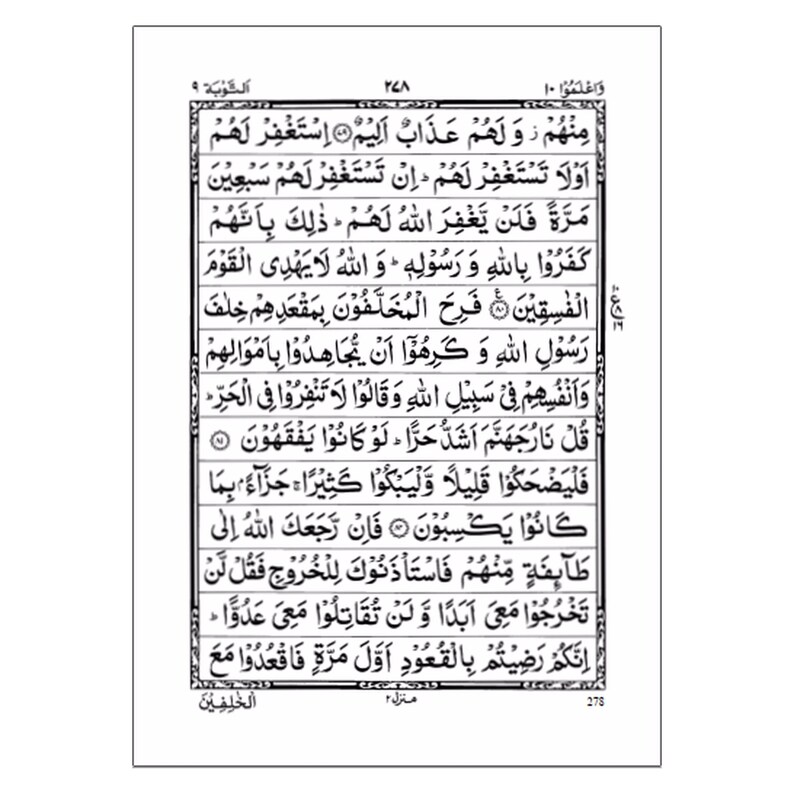 وَاعْلَمُوْٓا ١٠ ٢٧٨ اَلتَّوْبَة ٩
مِنْهُمْ ز وَ لَهُمْ عَذَابٌ اَلِيْمٌ ﴿٧٩﴾ اِسْتَغْفِرْ لَهُمْ
اَوْلَا تَسْتَغْفِرْ لَهُمْ ؕ اِنْ تَسْتَغْفِرْ لَهُمْ سَبْعِيْنَ
مَرَّةً فَلَنْ يَّغْفِرَ اللهُ لَهُمْ ؕ ذٰلِكَ بِاَنَّهُمْ
كَفَرُوْا بِاللهِ وَ رَسُوْلِهٖ ؕ وَ اللهُ لَا يَهْدِى الْقَوْمَ
الْفٰسِقِيْنَ ﴿٨٠﴾ ع فَرِحَ الْمُخَلَّفُوْنَ بِمَقْعَدِهِمْ خِلٰفَ
رَسُوْلِ اللهِ وَ كَرِهُوْٓا اَنْ يُّجَاهِدُوْا بِاَمْوَالِهِمْ
وَاَنْفُسِهِمْ فِىْ سَبِيْلِ اللهِ وَقَالُوْا لَا تَنْفِرُوْا فِى الْحَرِّ ؕ
قُلْ نَارُ جَهَنَّمَ اَشَدُّ حَرًّا ؕ لَوْ كَانُوْا يَفْقَهُوْنَ ﴿٨١﴾
فَلْيَضْحَكُوْا قَلِيْلًا وَّلْيَبْكُوْا كَثِيْرًا ۚ جَزَآءًۢ بِمَا
كَانُوْا يَكْسِبُوْنَ ﴿٨٢﴾ فَاِنْ رَّجَعَكَ اللهُ اِلٰى
طَآىِٕفَةٍ مِّنْهُمْ فَاسْتَاْذَنُوْكَ لِلْخُرُوْجِ فَقُلْ لَّنْ
تَخْرُجُوْا مَعِىَ اَبَدًا وَّ لَنْ تُقَاتِلُوْا مَعِىَ عَدُوًّا ؕ
اِنَّكُمْ رَضِيْتُمْ بِالْقُعُوْدِ اَوَّلَ مَرَّةٍ فَاقْعُدُوْا مَعَ
الْخٰلِفِيْنَ
منزل ٢
278